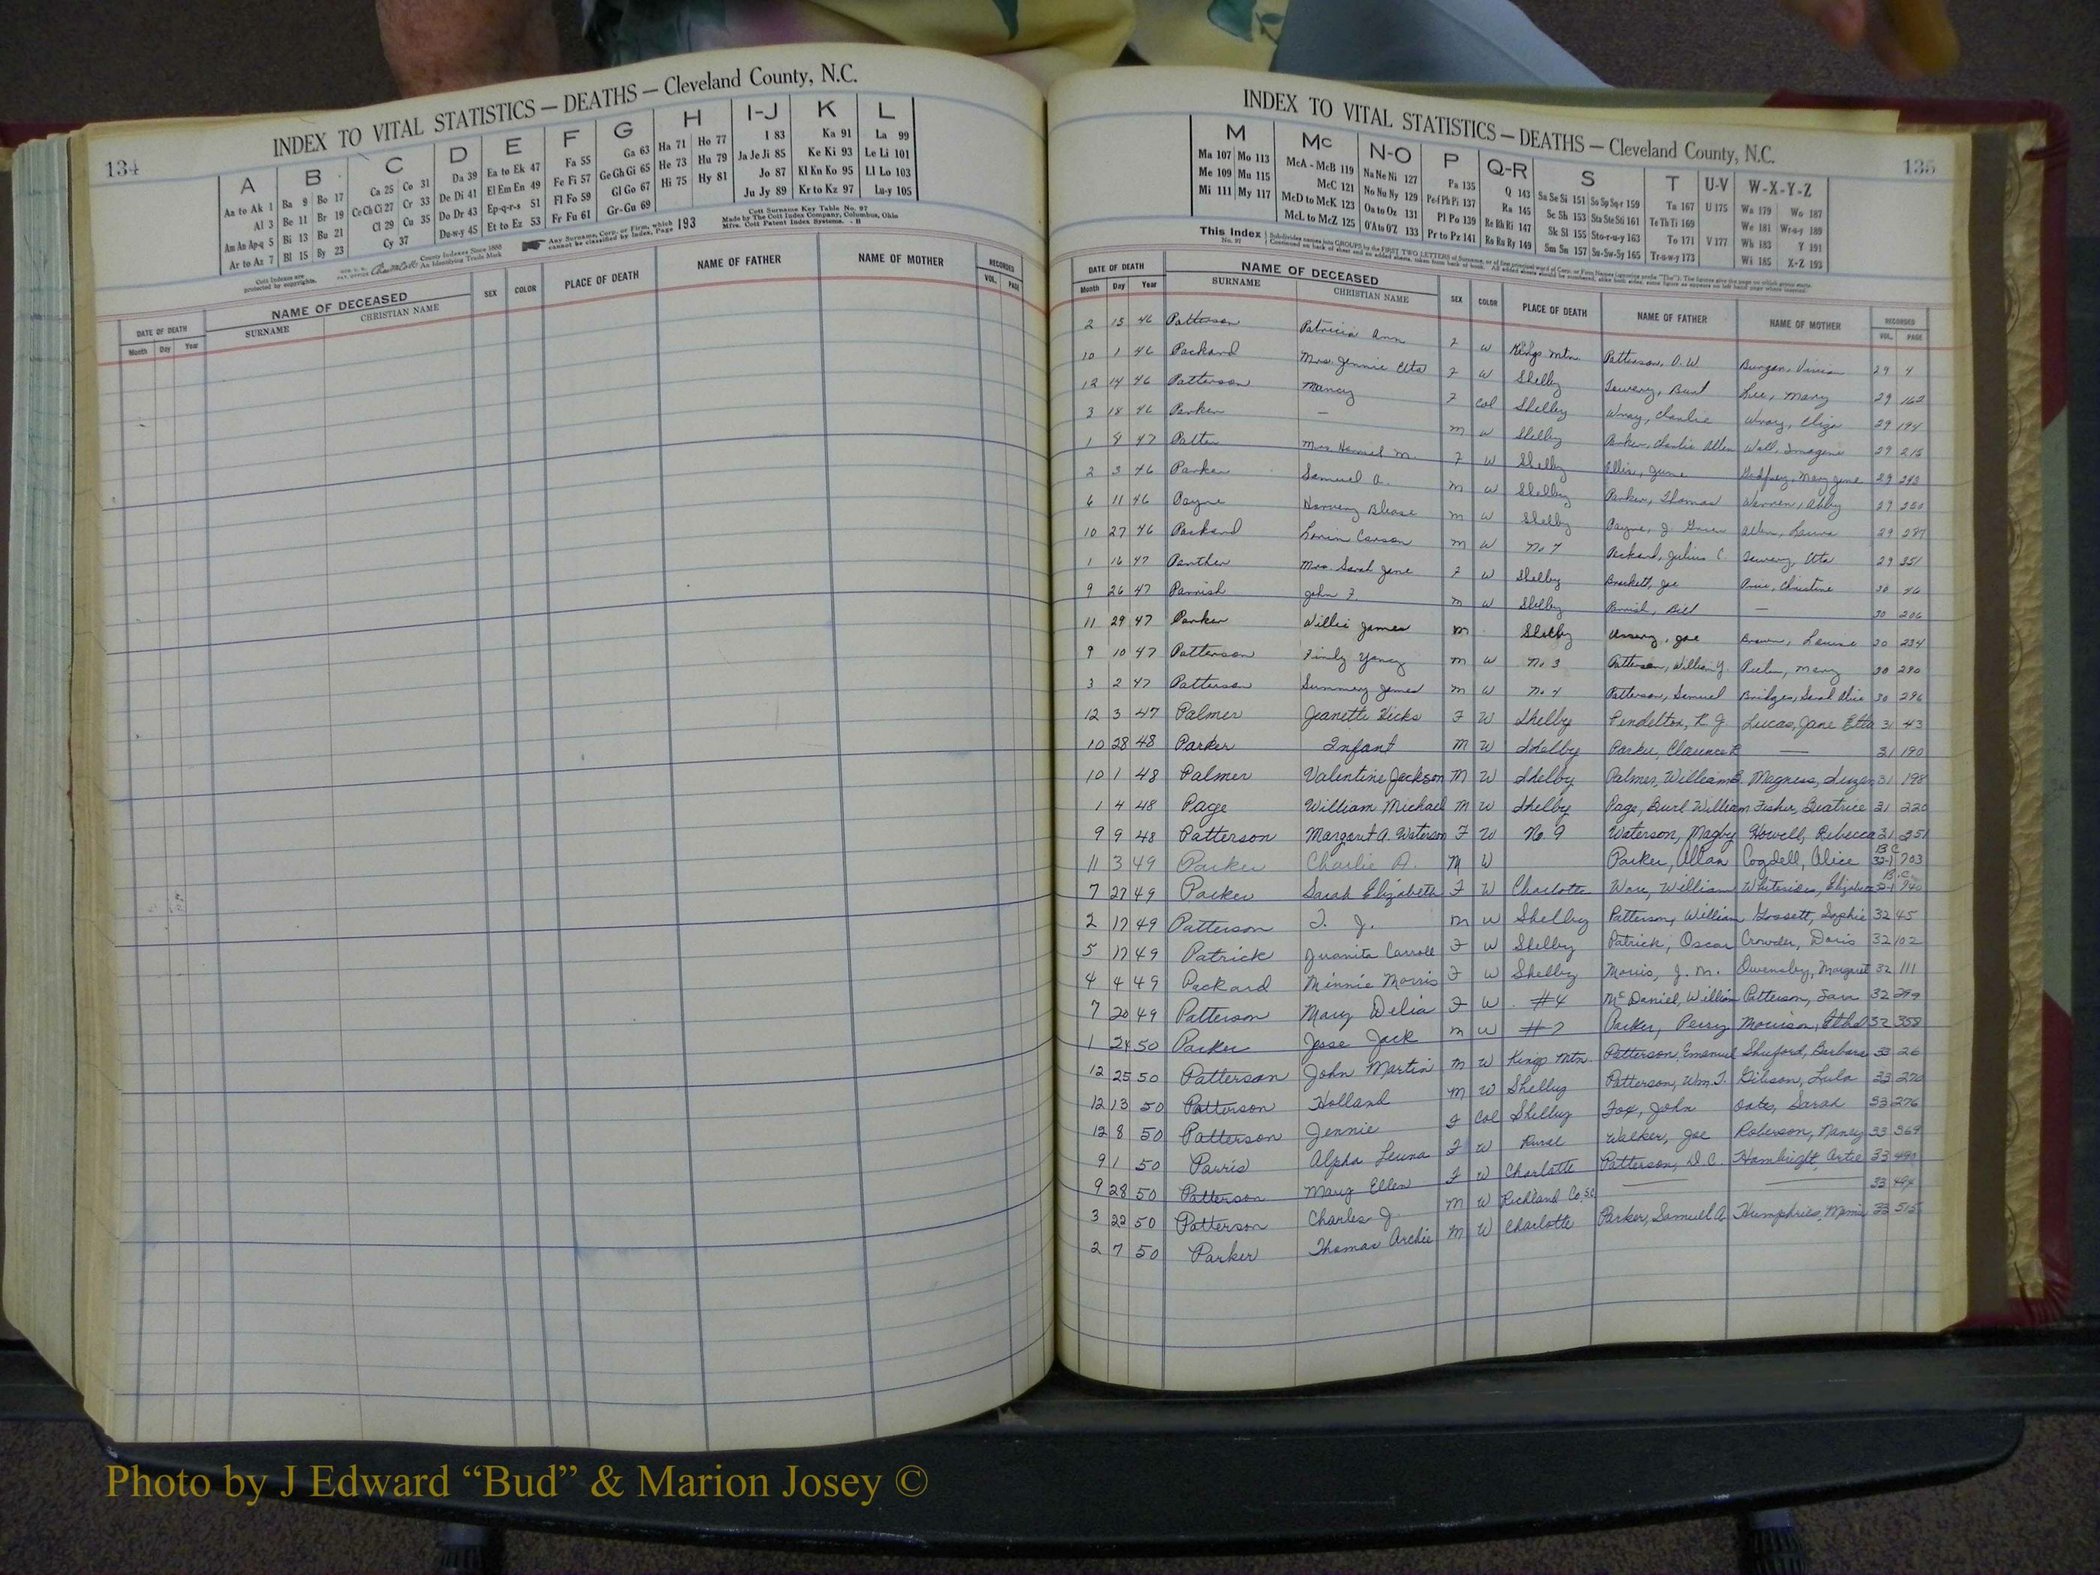 134
INDEX TO VITAL STATISTICS — DEATHS — Cleveland County, N.C.
A B C D E F G H I-J K L
Aa to Ak 1 Ba 9 Bo 17 Ca 25 Co 31 Da 39 Ea to Ek 47 Fa 55 Ga 63 Ha 71 Ho 77 I 83 Ka 91 La 99
Al 3 Be 11 Br 19 Ce Ch Ci 27 Cr 33 De Di 41 El Em En 49 Fe Fi 57 Ge Gh Gi 65 He 73 Hu 79 Ja Je Ji 85 Ke Ki 93 Le Li 101
Am An Ap-q 5 Bi 13 Bu 21 Cl 29 Cu 35 Do Dr 43 Ep-q-r-s 51 Fl Fo 59 Gl Go 67 Hi 75 Hy 81 Jo 87 Kl Kn Ko 95 Ll Lo 103
Ar to Az 7 Bl 15 By 23 Cy 37 Du-w-y 45 Et to Ez 53 Fr Fu 61 Gr-Gu 69 Ju Jy 89 Kr to Kz 97 Lu-y 105
Cott Indexes are protected by copyrights.
County Indexes Since 1888
An Identifying Trade Mark
Any Surname, Corp. or Firm, which cannot be classified by Index, Page 193
Cott Surname Key Table No. 97
Made by The Cott Index Company, Columbus, Ohio
Mfrs. Cott Patent Index Systems.
DATE OF DEATH NAME OF DECEASED SEX COLOR PLACE OF DEATH NAME OF FATHER NAME OF MOTHER RECORDED
Month Day Year SURNAME CHRISTIAN NAME VOL. PAGE
135
INDEX TO VITAL STATISTICS — DEATHS — Cleveland County, N.C.
M Mc N-O P Q-R S T U-V W-X-Y-Z
Ma 107 Mo 113 McA - McB 119 Na Ne Ni 127 Pa 135 Q 143 Sa Se Si 151 So Sp Sq-r 159 Ta 167 U 175 Wa 179 Wo 187
Me 109 Mu 115 McC 121 No Nu Ny 129 Pe-f Ph Pi 137 Ra 145 Sc Sh 153 Sta Ste Sti 161 Te Th Ti 169 We 181 Wr-u-y 189
Mi 111 My 117 McD to McK 123 Oa to Oz 131 Pl Po 139 Re Rh Ri 147 Sk Sl 155 Sto-r-u-y 163 To 171 V 177 Wh 183 Y 191
McL to McZ 125 O'A to O'Z 133 Pr to Pz 141 Ro Ru Ry 149 Sm Sn 157 Su-Sw-Sy 165 Tr-u-w-y 173 Wi 185 X-Z 193
This Index
No. 97
DATE OF DEATH NAME OF DECEASED SEX COLOR PLACE OF DEATH NAME OF FATHER NAME OF MOTHER RECORDED
Month Day Year SURNAME CHRISTIAN NAME VOL. PAGE
2 15 46 Patterson Patricia Ann F W Kings Mtn Patterson, O. W. 29 4
10 1 46 Packard Mrs. Jennie F W Shelby Mary 29 162
12 14 46 Patterson Nancy F Col Shelby Wray, Charlie Wray, Eliza 29 194
3 18 46 Parker — M W Shelby Parker, Charlie Allen Wall, Imogene 29 215
1 8 47 Mrs. F W Shelby Ellis, June Mary Jane 29
2 3 46 Parker Samuel A. M W Shelby Parker, Thomas Warren, Abby 250
6 11 46 Payne Harvey Blease M W Shelby Payne, J. Laura 29 287
10 27 46 Packard Carson M W No 7 Packard, Julius C 29 351
1 16 47 Panther Mrs. Sarah Jane F W Shelby Brackett, Joe Christine 30 46
9 26 47 Parrish John F. M W Shelby Parrish, Bill — 30 206
11 29 47 Parker Willie James M Shelby Ussery, Joe Brown, Louise 30 234
9 10 47 Patterson Finly Yancy M W No 3 Patterson, William Y. Mary 30 290
3 2 47 Patterson Summey James M W No 4 Patterson, Samuel Bridges, Sarah Alice 30 296
12 3 47 Palmer Jeanette Hicks F W Shelby Pendelton, R. J. Lucas, Jane Etta 31 43
10 28 48 Parker Infant M W Shelby Parker, Clarence R — 31 190
10 1 48 Palmer Valentine Jackson M W Shelby Palmer, William B. Magness, Suzan 31 198
1 4 48 Page William Michael M W Shelby Page, Burl William Fisher, Beatrice 31 220
9 9 48 Patterson Margaret A. Waterson F W No. 9 Waterson, Magby Howell, Rebecca 31 251
11 3 49 Parker Charlie A. M W Parker, Allan Cogdell, Alice B C 32-1 703
7 27 49 Parker Sarah Elizabeth F W Charlotte Ware, William Whitesides, Elizabeth B. C. 32-1 940
2 17 49 Patterson T. J. M W Shelby Patterson, William Gossett, Sophie 32 45
5 17 49 Patrick Juanita Carroll F W Shelby Patrick, Oscar Crowder, Doris 32 102
4 4 49 Packard Minnie Morris F W Shelby Morris, J. M. Owensby, Margaret 32 111
7 20 49 Patterson Mary Delia F W #4 McDaniel, William Patterson, Sara 32 299
1 24 50 Parker Jesse Jack M W #7 Parker, Perry Morrison, Ethel 32 358
12 25 50 Patterson John Martin M W Kings Mtn Patterson, Emanuel Shuford, Barbara 33 26
12 13 50 Patterson Holland M W Shelby Patterson, Wm. T. Gibson, Lula 33 270
12 8 50 Patterson Jennie F Col Shelby Fox, John Oats, Sarah 33 276
9 1 50 Parris Alpha Leuna F W Rural Walker, Joe Roberson, Nancy 33 369
9 28 50 Patterson Mary Ellen F W Charlotte Patterson, D. C. Hambright, Artie 33 490
3 22 50 Patterson Charles J. M W Richland Co. S.C. — — 33 494
2 7 50 Parker Thomas Archie M W Charlotte Parker, Samuel A. Humphries, 33 515
Photo by J Edward “Bud” & Marion Josey ©